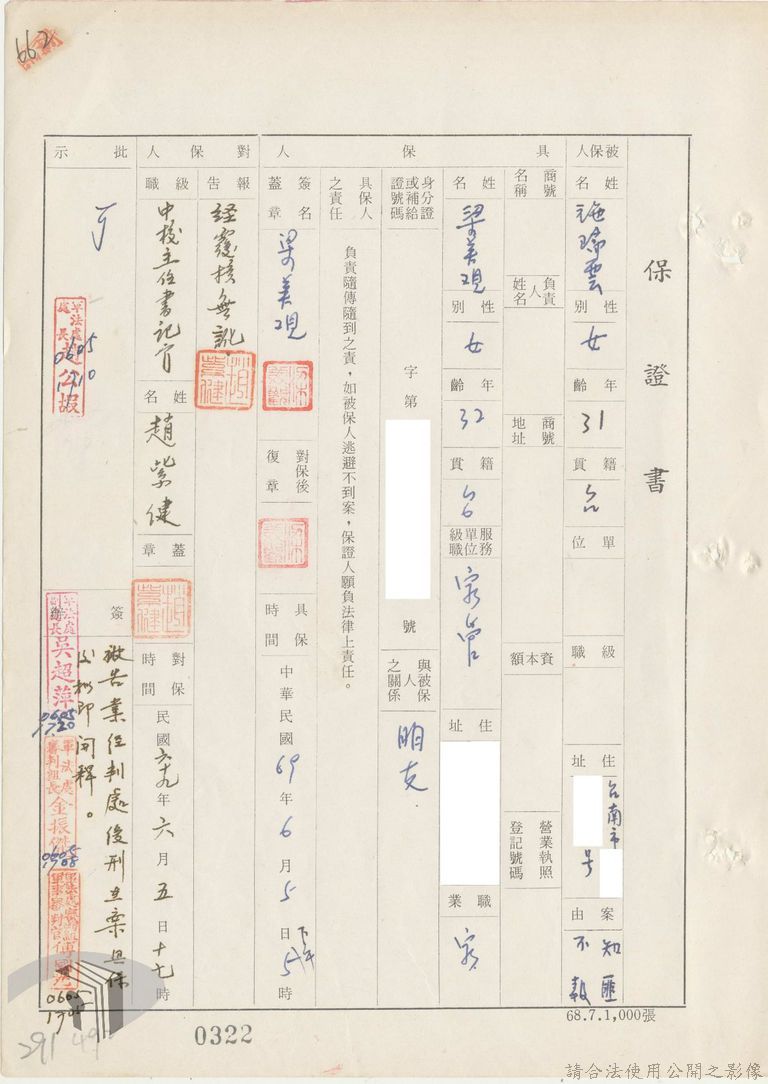 662
保證書
被保人
姓名
施瑞雲
性別
女
年齡
31
籍貫
台
單位
級職
住址
台南市
號
案由
知匪不報
具保人
商號名稱
負責人姓名
商號地址
資本額
營業執照登記號碼
姓名
梁美現
性別
女
年齡
32
籍貫
台
服務單位級職
家管
住址
職業
家
身分證或補給證號碼
字第
號
與被保人之關係
朋友
具保人之責任
負責隨傳隨到之責，如被保人逃避不到案，保證人願負法律上責任。
簽名蓋章
梁美現
對保後復章
具保時間
中華民國69年6月5日下午5時
對保人
報告
經覆核無訛
級職
中校主任書記官
姓名
趙紫健
蓋章
對保時間
民國六十九年六月五日十七時
批示
可
軍法處處長
0605
1710
簽辦
被告業經判處徒刑在案具保
後擬即開釋。
軍法處副處長吳超萍
0605
1720
軍法處審判組長金振傑
0605
1705
0605
1705
68.7.1,000張
0322
291
49
請合法使用公開之影像